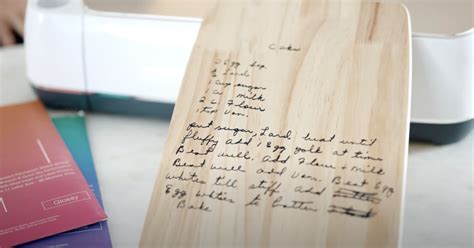 Cake
2 Egg Sep
½ Lard
1 cup sugar
1 c. Milk
2 C. Flour
1 tsp Van.
put sugar, Lard, beat until
fluffy add 1 Egg yolk at time
Beat well, add Flour, Milk
Beat well add Van. Beat Egg
whites till stiff add
Egg whites to batter
Bake
Glossy